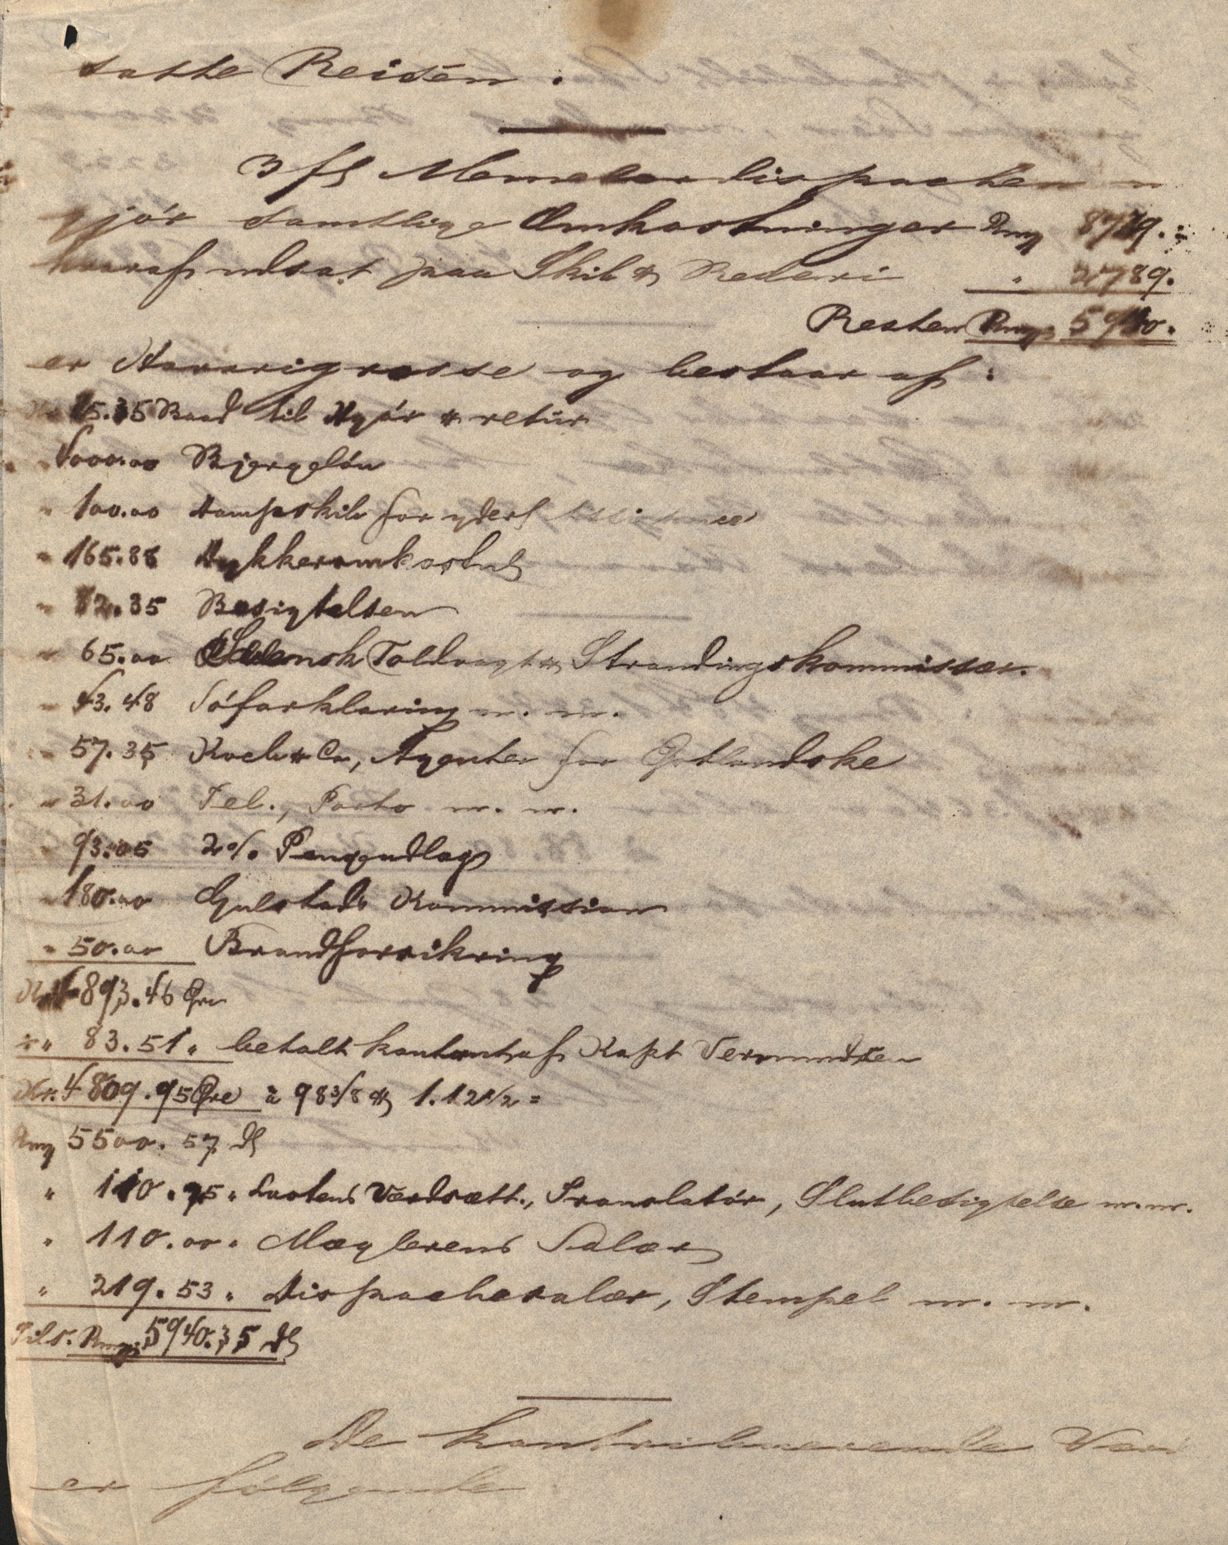 satte Reisen.
Ifl Memeler Dispachen
gjør samtlige Omkostninger Rmg 8729.-
hvoraf udsat paa Skib & Rederi " 2789.
Resten Rmg 5940.
er Havarigrosse og bestaar af:
25.35 Baad til og retür
" 4000.00 Bjergeløn
" 100.00 Dampskib for yderl
" 165.88 Dykkeromkostn
" 82.35 Besigtelsen
" 65.00 Svensk Toldvagt & Strandingskommissær.
" 43.48 Søforklaring m. m.
" 57.35 Koch & Co, Agenter for Gotlandske
" 31.00 Tel., Porto m. m.
" 93.05 2% Pengeudlæg
" 180.00 Gulstads Kommission
" 50.00 Brandforsikring
Kr. 4893.46 Øre
" 83.51 " betalt kontant af Kapt Vermundsen
Kr. 4809.95 Øre à 98 3/8 & 1.12 1/2 =
Rmg 5500.57 d
" 110.25 " Lootens Værdsætt., Translatør, Slutbesigtelse m.m.
" 110.00 " Mæglerens Salær
" 219.53 " Dispachesalær, Stempel m. m.
Tils. Rmg 5940.35 d
De kontribuerende Vær
er følgende